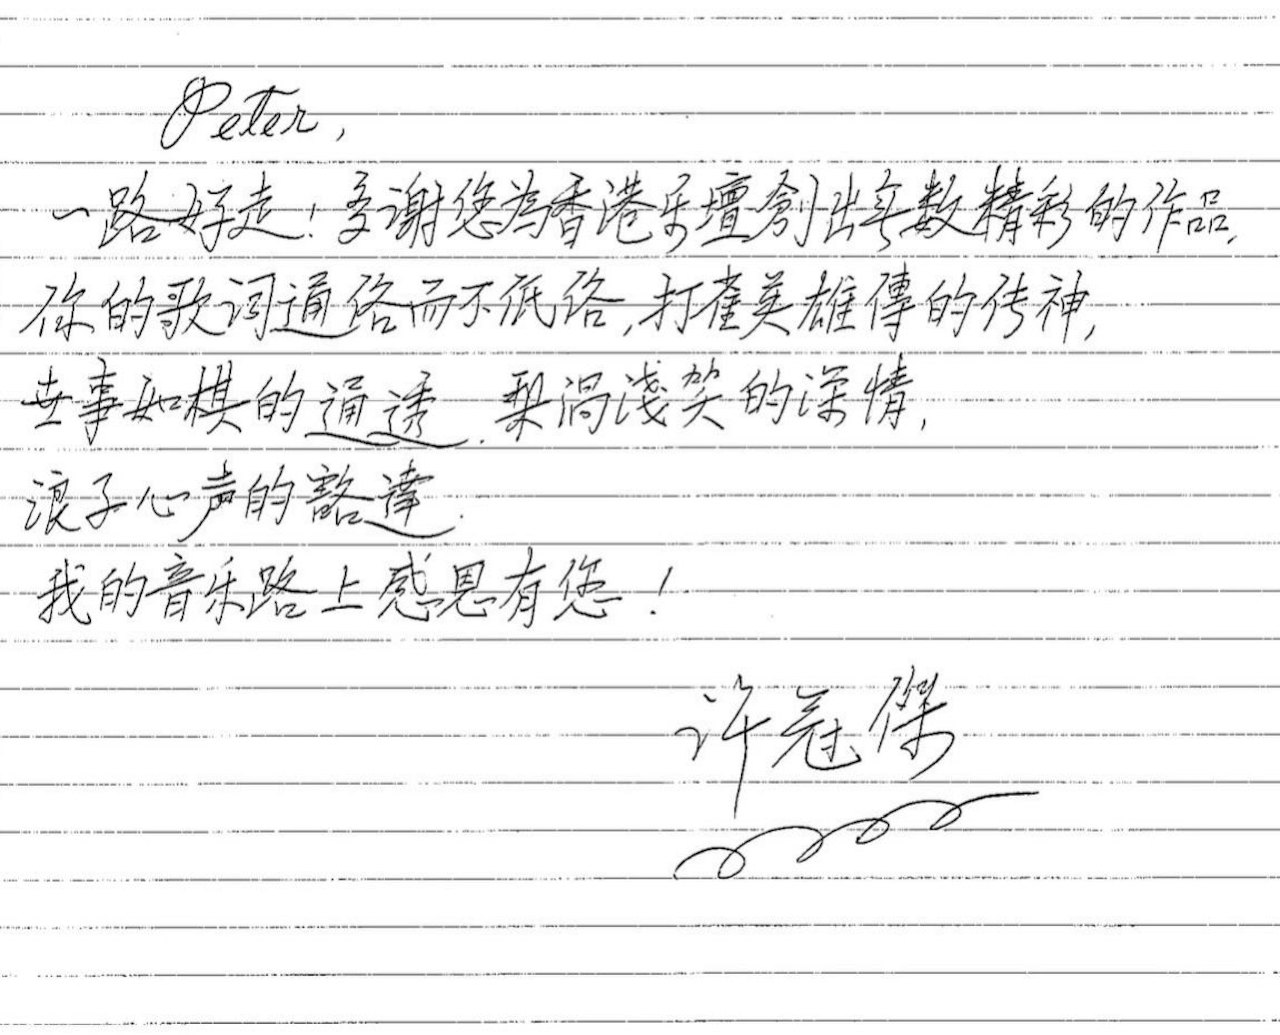 Peter,
一路好走！多謝您為香港乐壇創出無数精彩的作品,
你的歌词通俗而不低俗,打雀英雄傳的传神,
世事如棋的通透.梨渦淺笑的深情,
浪子心声的豁達.
我的音乐路上感恩有您！
许冠傑